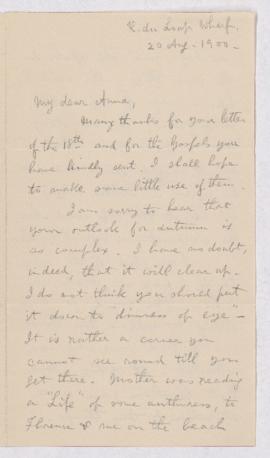 20 Aug. 1900.
My dear Anna,
Many thanks for your letter
of the 18th and for the Gospels you
have kindly sent. I shall hope
to make some little use of them.
I am sorry to hear that
your outlook for autumn is
so complex. I have no doubt,
indeed, that it will clear up.
I do not think you should put
it down to dimness of eye –
It is rather a corner you
cannot see round till you
get there. Mother was reading
a "Life" of some authoress, to
Florence & me on the beach